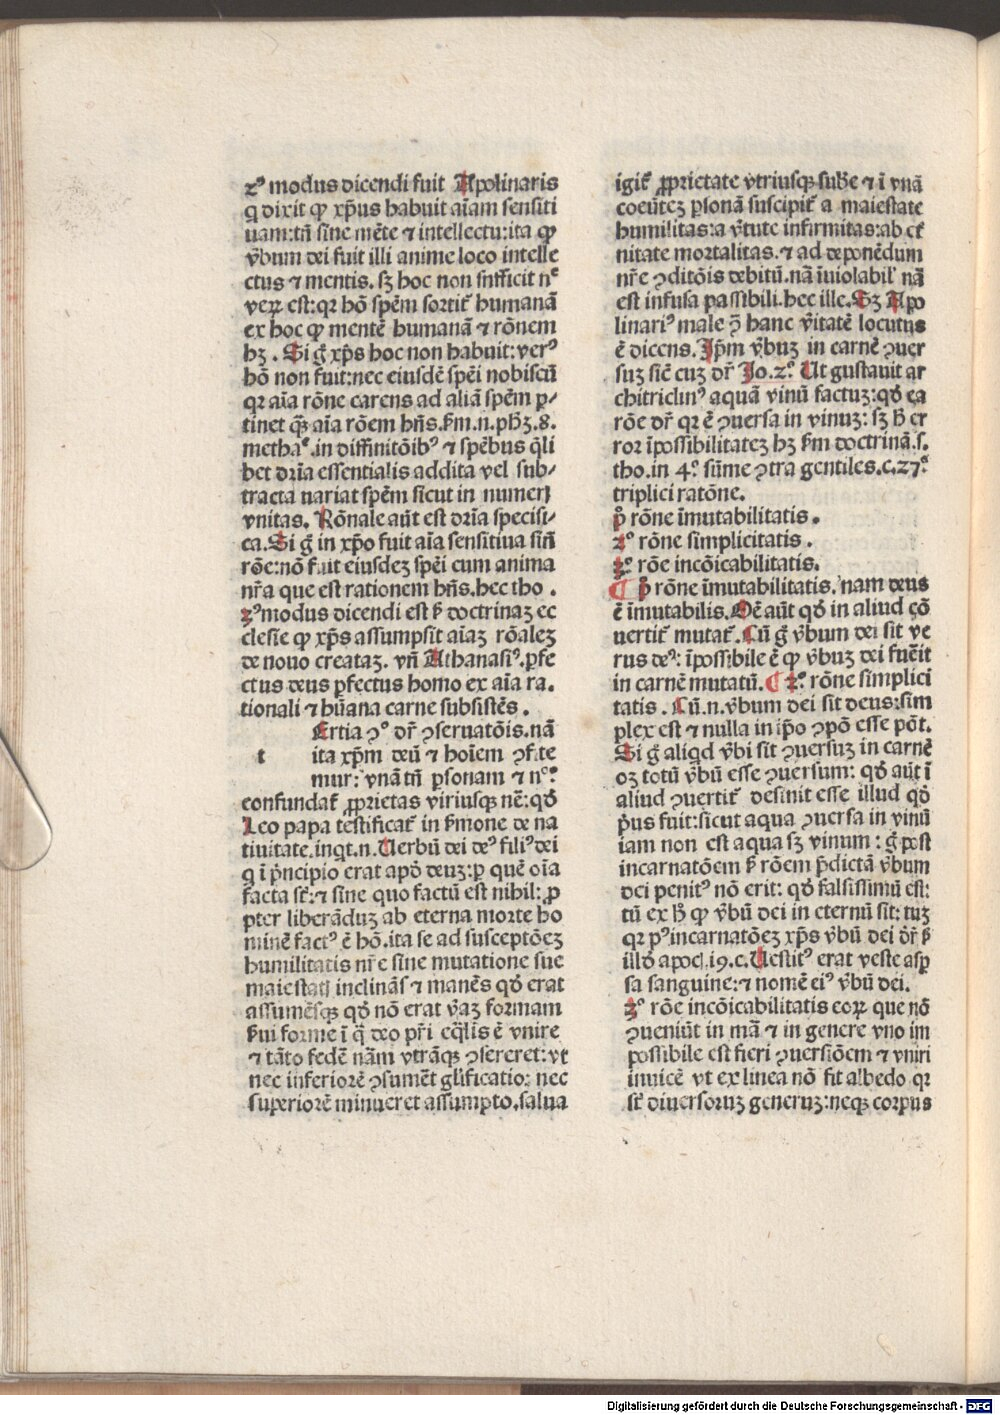 2ꝰ modus dicendi fuit Apolinaris
q dixit ꝙ xp̄us habuit aīam sensiti
uam:tn̄ sine mēte ⁊ intellectu:ita ꝙ
v̄bum dei fuit illi anime loco intelle
ctus ⁊ mentis. sꝫ hoc non sufficit nᶜ
veꝝ est:qꝛ hō spēm sortit᷑ humanā
ex hoc ꝙ mentē humanā ⁊ rōnem
hꝫ . Si g̊ xp̄s hoc non habuit: verꝰ
hō non fuit:nec eiusdē spēi nobiscū
qꝛ aīa rōne carens ad aliā spēm ꝑ⸗
tinet q̄ꝫ aīa rōem hn̄s. ẜm.n.ph̄ꝫ.8.
methaᵉ.in diffinitōibꝰ ⁊ spēbus q̄li
bet drīa essentialis addita vel sub⸗
tracta uariat spēm sicut in numeri
vnitas. Rōnale aūt est drīa specifi⸗
ca.Si g̊ in xp̄o fuit aīa sensitiua sin̄
rōe:nō fuit eiusdeꝫ spēi cum anima
nr̄a que est rationem hn̄s.hec tho .
3ꝰmodus dicendi est ẜ doctrinaꝫ ec
clesie ꝙ xp̄s assumpsit aiaꝫ rōaleꝫ
de nouo creataꝫ. vn̄ Athanasiꝰ.ꝑfe
ctus deus ꝑfectus homo ex aīa ra.
tionali ⁊ hūana carne subsistēs .
Ertia ꝯꝰ dr̄ ꝯseruatōis.nā
t ita xp̄m deū ⁊ hoīem ꝯfite
mur: vnā tn̄ ꝑsonam ⁊ nᶜᵉ
confundat᷑ ꝓprietas vtriusqꝫ nē:qd̕
Leo papa testificat᷑ in ẜmone de na
tiuitate.inqt.n.Uerbū dei deꝰ filiꝰdei
q ī pͥncipio erat apd̕ deuꝫ:ꝑ quē oīa
facta sūt:⁊ sine quo factū est nihil: ꝓ
pter liberāduꝫ ab eterna morte ho
minē factꝰ ē hō.ita se ad susceptōeꝫ
humilitatis nr̄e sine mutatione sue
maiestatis inclinās ⁊ manēs qd̕ erat
assumēsqꝫ qd̕ nō erat v̄aꝫ formam
ẜui forme ī q̄ deo pr̄i eq̄lis ē vnire
⁊ tāto fedē nāꝫ vtrāqꝫ ꝯsereret: vt
nec inferiorē ꝯsumēt glīficatio: nec
superiorē minueret assumpto.salua
igit᷑ ꝓprietate vtriusqꝫ sub̄e ⁊ ī vnā
coeūteꝫ ꝑsonā suscipit᷑ a maiestate
humilitas:a v̄tute infirmitas:ab et᷑
nitate mortalitas. ⁊ ad deponēdum
nr̄e ꝯditōis debitū.nā īuiolabilʼ nā
est infusa passibili.hec ille.Sꝫ Apo
linariꝰ male ꝓ hanc v̄itatē locutus
ē dicens. Ip̄m v̄buꝫ in carnē ꝯuer
suꝫ siē cuꝫ dr̄ Jo.2ꝰ. Ut gustauit ar
chitriclinꝰ aquā vinū factuꝫ:qd̕ ea
rōe dr̄ qꝛ ē ꝯuersa in vinuꝫ: sꝫ h̄ er
ror īpossibilitateꝫ hꝫ ẜm doctrinā.s.
tho.in 4ᵒ. sūme ꝯtra gentiles.c.27ᵉ
triplici ratōne.
pͦ rōne īmutabilitatis .
2ᵒ rōne simplicitatis .
3ᵒ rōe incōicabilitatis.
¶ pͦ rōne īmutabilitatis. nam deus
ē īmutabilis. Oē aūt qd̕ in aliud cō
uertit᷑ mutat᷑. Cū g̊ v̄bum dei sit ve
rus deꝰ: īpossibile ē ꝙ v̄buꝫ dei fuēit
in carnē mutatū. ¶ 2ᵒ. rōne simplici
tatis . Cū.n.v̄bum dei sit deus:sim
plex est ⁊ nulla in ip̄o ꝯpō esse pōt.
Si g̊ aliqd v̄bi sit ꝯuersuꝫ in carnē
oꝫ totū v̄bū esse ꝯuersum: qd̕ aūt ī
aliud ꝯuertit᷑ desinit esse illud qd̕
pͥus fuit:sicut aqua ꝯuersa in vinū
iam non est aqua sꝫ vinum : g̊ post
incarnatōem ẜ rōem p̄dictā v̄bum
dei penitꝰ nō erit: qd̕ falsissimū est:
tū ex h̄ ꝙ v̄bū dei in eternū sit: tuꝫ
qꝛ pꝰincarnatōeꝫ xp̄s v̄bū dei dr̄ ẜ
illd̕ apoc̄.19.c.Uestitꝰ erat veste aspꝫ
sa sanguine:⁊ nomē eiꝰ v̄bū dei.
3ᵒ rōe incōicabilitatis eoꝝ que nō
ꝯueniūt in mā ⁊ in genere vno im
possibile est fieri ꝯuersiōem ⁊ vniri
inuicē vt ex linea nō fit albedo qꝛ
sūt diuersoruꝫ generuꝫ:neqꝫ corpus
Digitalisierung gefördert durch die Deutsche Forschungsgemeinschaft - DFG